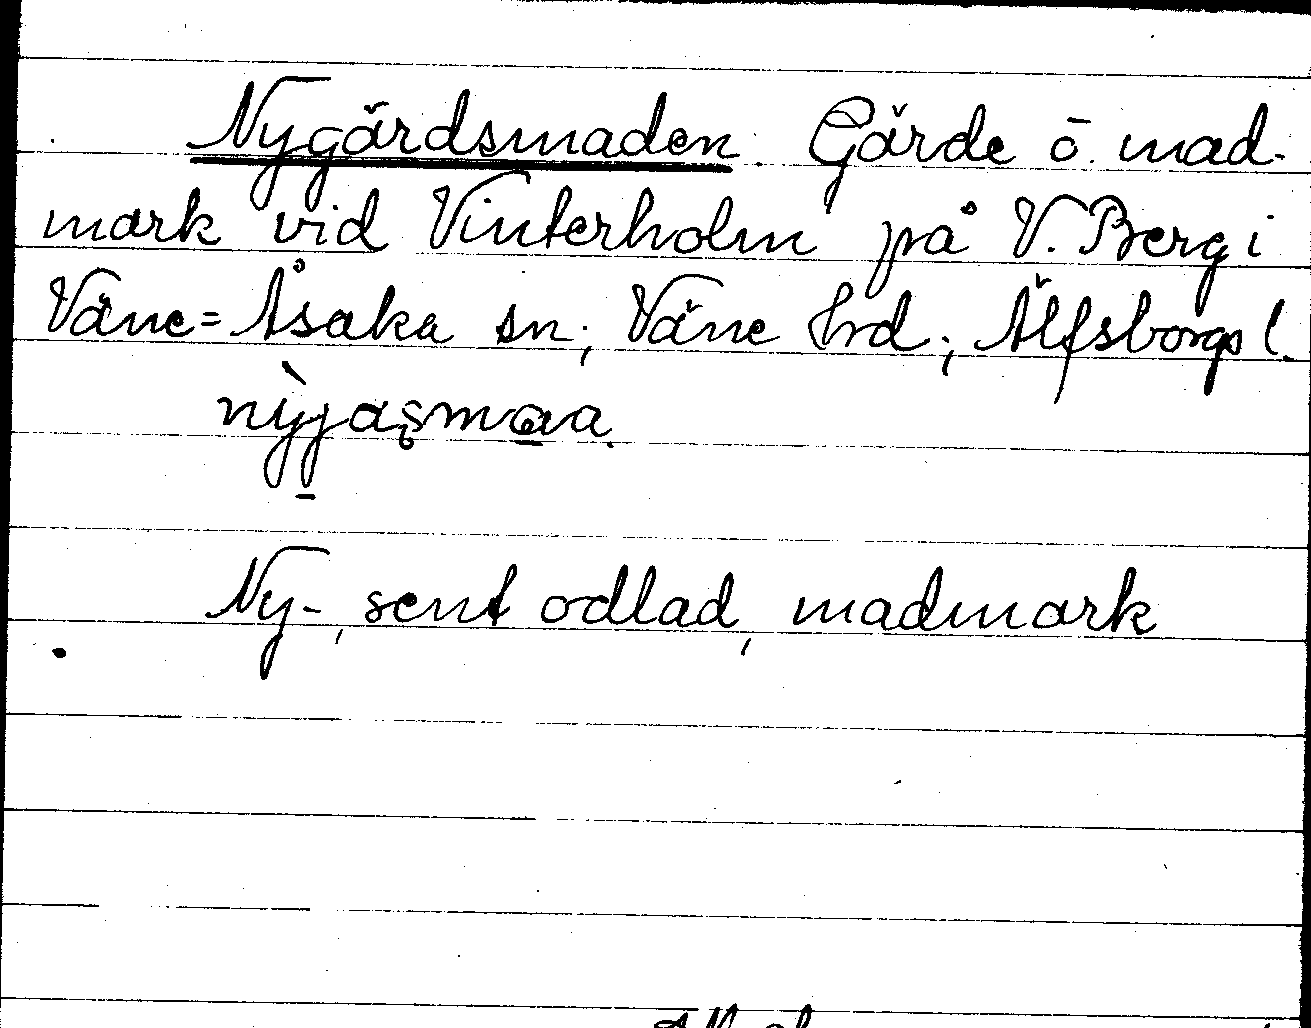 Nygärdsmaden. Gärde o. mad-
mark vid Vinterholm på V. Berg i
Väne=Åsaka sn; Väne hrd.; Älfsborgs l.
Ny-, sent odlad, madmark